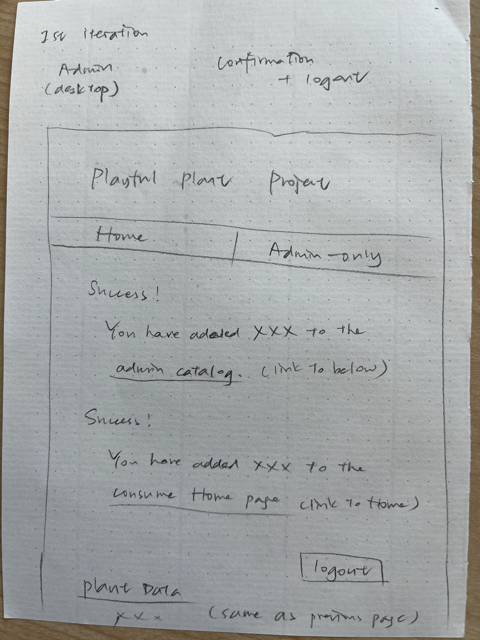 1st iteration
Admin
(desktop)
Confirmation
+ logout
Playful Plant Project
Home | Admin-only
Success!
You have added XXX to the
admin catalog. (link to below)
Success!
You have added XXX to the
consume Home page (link to Home)
logout
Plant Data
XXX (same as previous page)